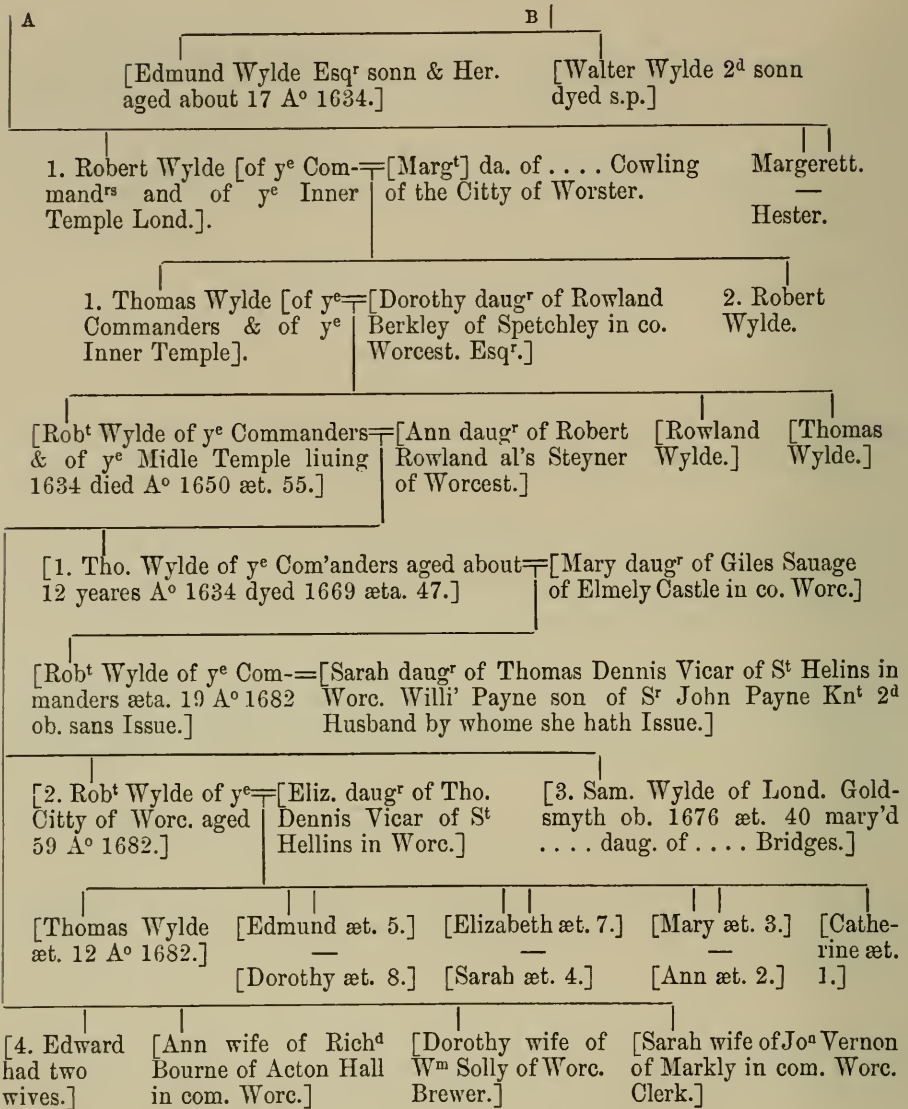 A
B
[Edmund Wylde Esqʳ sonn & Her.
aged about 17 Aº 1634.]
[Walter Wylde 2ᵈ sonn
dyed s.p.]
1. Robert Wylde [of yᵉ Com-
mandʳˢ and of yᵉ Inner
Temple Lond.].
[Margᵗ] da. of . . . . Cowling
of the Citty of Worster.
Margerett.
—
Hester.
1. Thomas Wylde [of yᵉ
Commanders & of yᵉ
Inner Temple].
[Dorothy daugʳ of Rowland
Berkley of Spetchley in co.
Worcest. Esqʳ.]
2. Robert
Wylde.
[Robᵗ Wylde of yᵉ Commanders
& of yᵉ Midle Temple liuing
1634 died Aº 1650 æt. 55.]
[Ann daugʳ of Robert
Rowland al's Steyner
of Worcest.]
[Rowland
Wylde.]
[Thomas
Wylde.]
[1. Tho. Wylde of yᵉ Com'anders aged about
12 yeares Aº 1634 dyed 1669 æta. 47.]
[Mary daugʳ of Giles Sauage
of Elmely Castle in co. Worc.]
[Robᵗ Wylde of yᵉ Com-
manders æta. 19 Aº 1682
ob. sans Issue.]
[Sarah daugʳ of Thomas Dennis Vicar of Sᵗ Helins in
Worc. Willi' Payne son of Sʳ John Payne Knᵗ 2ᵈ
Husband by whome she hath Issue.]
[2. Robᵗ Wylde of yᵉ
Citty of Worc. aged
59 Aº 1682.]
[Eliz. daugʳ of Tho.
Dennis Vicar of Sᵗ
Hellins in Worc.]
[3. Sam. Wylde of Lond. Gold-
smyth ob. 1676 æt. 40 mary'd
. . . . daug. of . . . . Bridges.]
[Thomas Wylde
æt. 12 Aº 1682.]
[Edmund æt. 5.]
—
[Dorothy æt. 8.]
[Elizabeth æt. 7.]
—
[Sarah æt. 4.]
[Mary æt. 3.]
—
[Ann æt. 2.]
[Cathe-
rine æt.
1.]
[4. Edward
had two
wives.]
[Ann wife of Richᵈ
Bourne of Acton Hall
in com. Worc.]
[Dorothy wife of
Wᵐ Solly of Worc.
Brewer.]
[Sarah wife of Joⁿ Vernon
of Markly in com. Worc.
Clerk.]